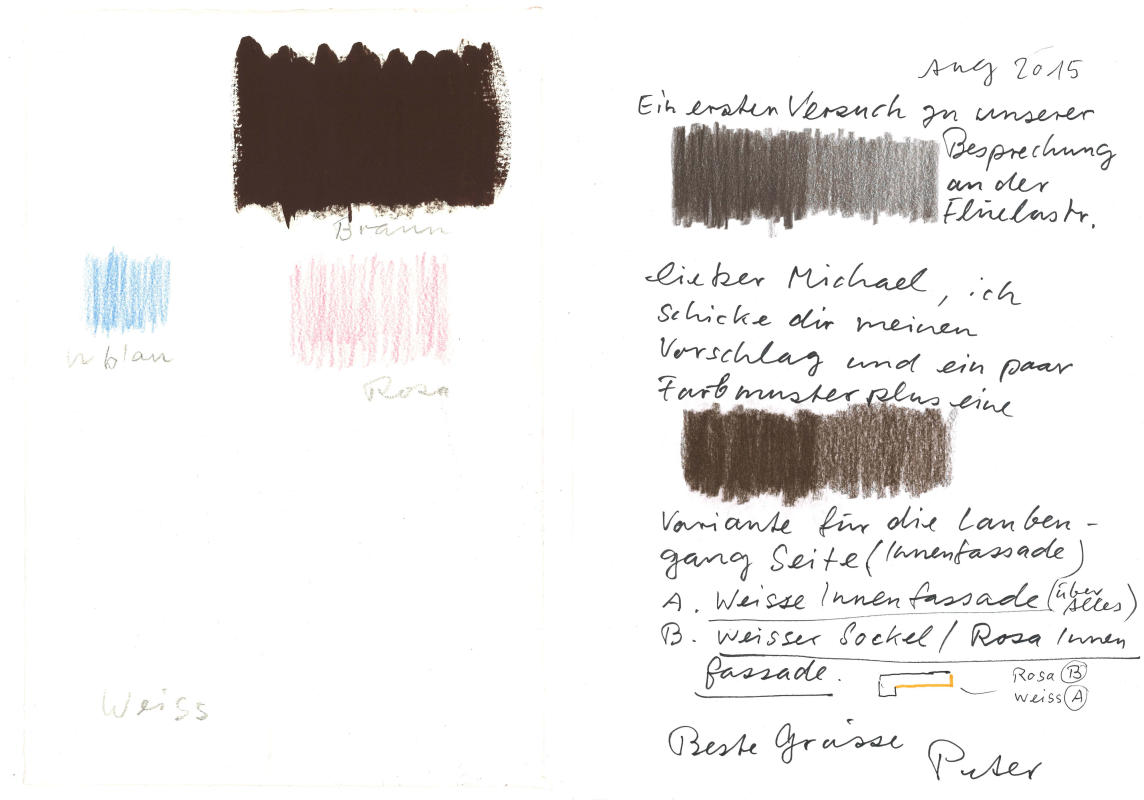 Braun
blau
Rosa
Weiss
Aug 2015
Ein ersten Versuch zu unserer
Besprechung
an der
Flüelastr.
lieber Michael, ich
schicke dir meinen
Vorschlag und ein paar
Farbmuster plus eine
Variante für die Lauben-
gang Seite (Innenfassade)
A. Weisse Innenfassade (über Alles)
B. weisser Sockel / Rosa Innen
fassade.
Rosa B
Weiss A
Beste Grüsse
Peter